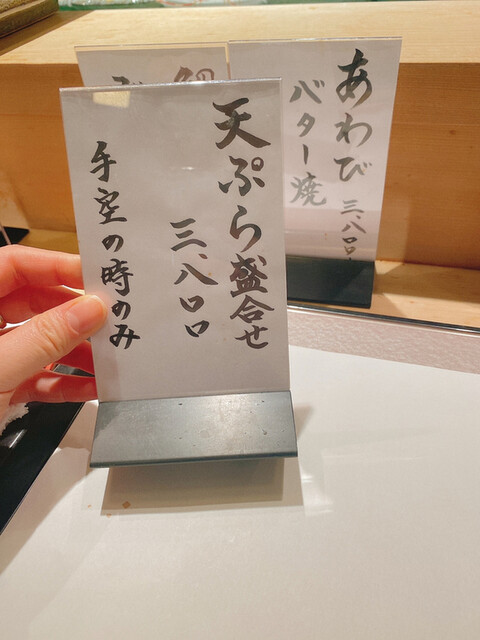 天ぷら盛合せ
三、八〇〇
手空の時のみ
あわび
バター焼
三、八〇〇